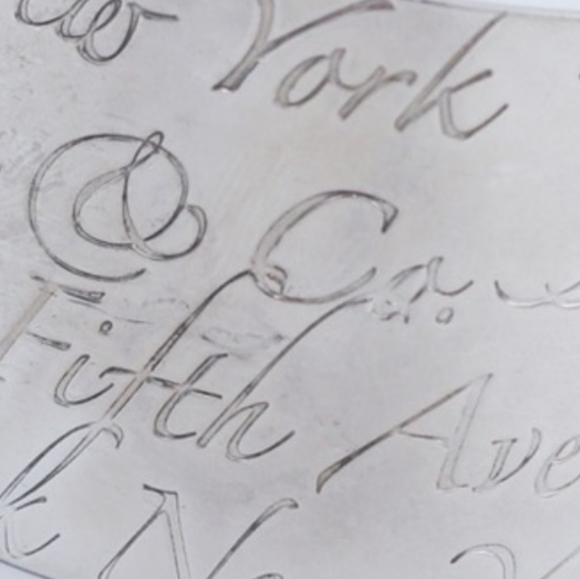 ew York
& Co.
Fifth Ave
k N